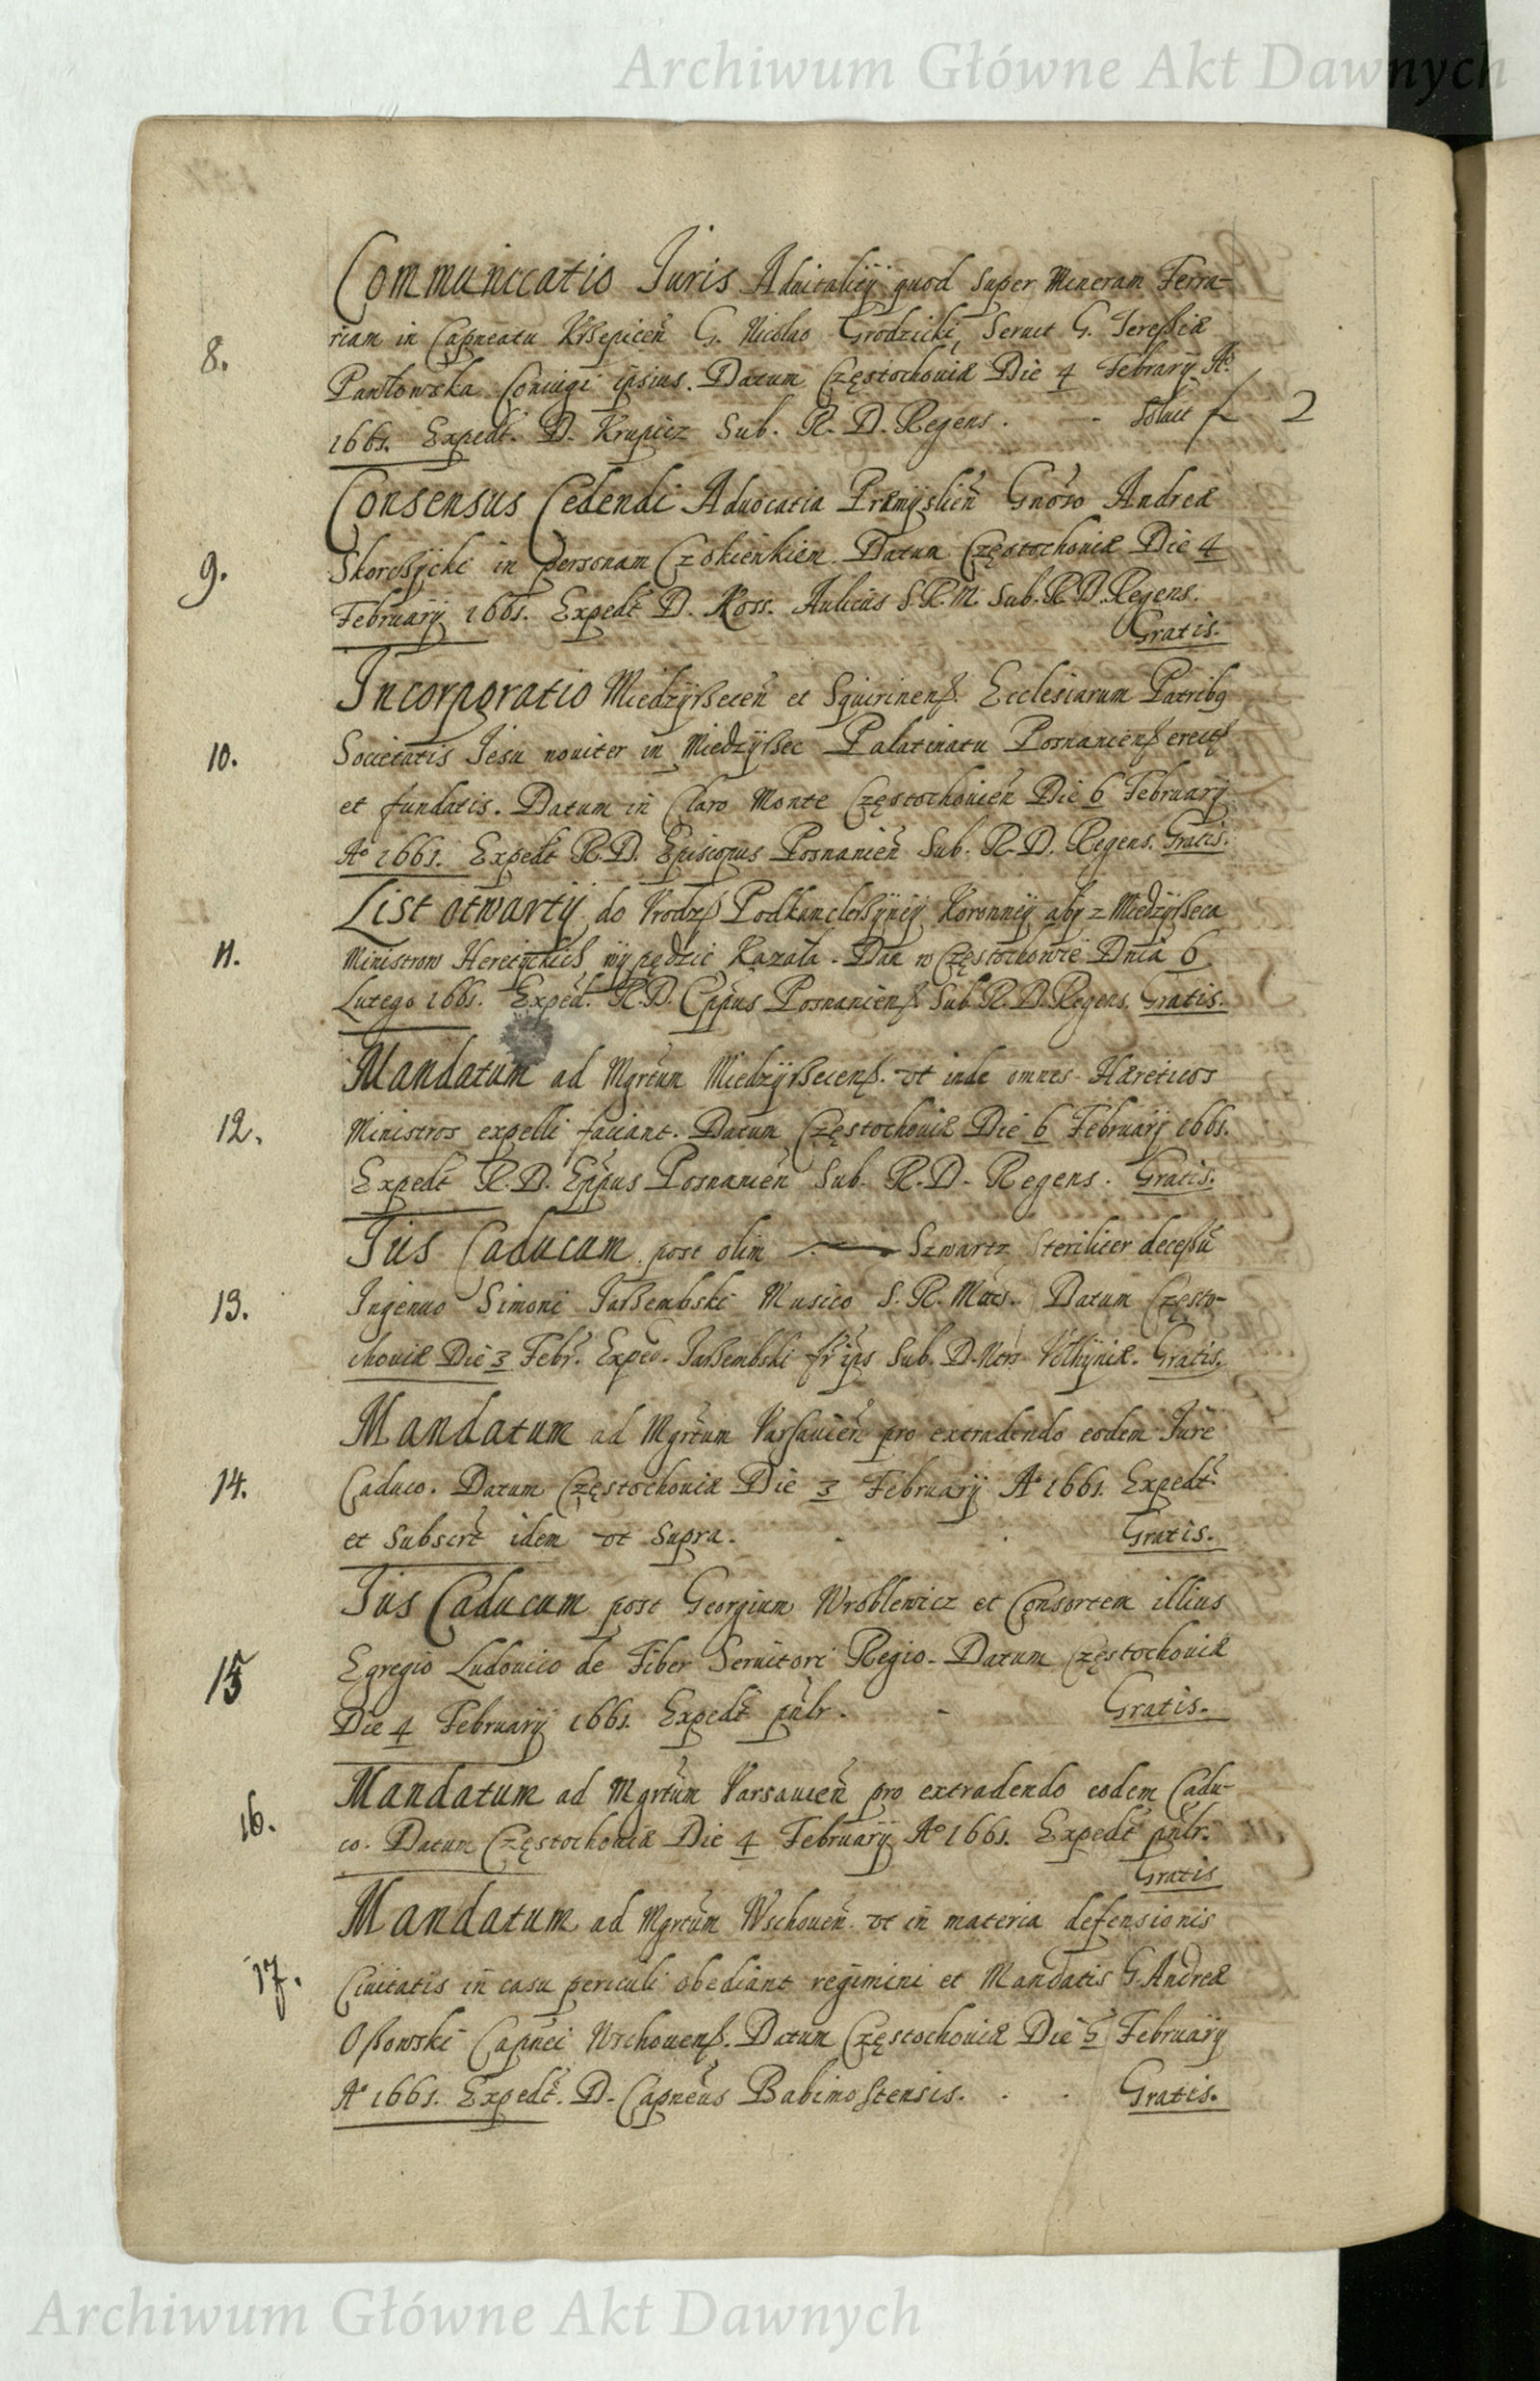 Archiwum Główne Akt Dawnych
Communicatio Iuris Aduitalicÿ quod super Mineram Ferra-
8. riam in Capneatu Krßepicen̄ G. Nicolao Grodzicki, Seruit G. Tereßiæ
Pawłowska Coniugi ipsius. Datum Częstochouiæ Die 4 Februarÿ Aº
1661. Expedt. D. Krupicz Sub. R. D. Regens. - Soluit f 2
Consensus Cedendi Aduocatia Præmÿslien̄ Gnoso Andreæ
9. Skorcßÿcki in personam Czokienkiem. Datum Częstochouiæ Die 4
Februarÿ 1661. Expedt D. Koss. Aulicus S. R. M. Sub. R. D. Regens.
Gratis.
Incorporatio Miedzÿßecen̄ et Squirinenß. Ecclesiarum Patribq
10. Societatis Iesu nouiter in Miedzÿßec Palatinatu Posnanienß erectß
et fundatis. Datum in Claro Monte Częstochouien̄ Die 6 Februarÿ
Aº 1661. Expedt R. D. Episcopus Posnanien̄ Sub. R. D. Regens. Gratis.
List otwartÿ do Vrodzß Podkanclerßÿneÿ Koronneÿ abÿ z Miedzÿßeca
11. Ministrow Heretÿckich wÿpędzic kazała. Dan w Częstochowie Dnia 6
Lutego 1661. Exped. R. D. Eppus Posnanienß Sub R. D. Regens. Gratis.
Mandatum ad Mgrtum Miedzÿßecenß. vt inde omnes Hæreticos
12. Ministros expelli faciant. Datum Częstochouiæ Die 6 Februarÿ 1661.
Expedt R. D. Eppus Posnanien̄ Sub. R. D. Regens. Gratis.
Ius Caducum post olim Szwartz steriliter deceßu
13. Ingenuo Simoni Iarßembski Musico S. R. Mtis. Datum Często-
chouiæ Die 3 Febr. Exped. Iarßembski fr ips Sub. D. Ntrs Volhÿniæ. Gratis.
Mandatum ad Mgrtum Varsauien̄ pro extradendo eodem Iure
14. Caduco. Datum Częstochouiæ Die 3 Februarÿ Aº 1661. Expedt
et Subscrt idem vt supra. Gratis.
Ius Caducum post Georgium Wroblewicz et Consortem illius
15 Egregio Ludouico de Fiber Seruitori Regio. Datum Częstochouiæ
Die 4 Februarÿ 1661. Expedt pnlr. - Gratis.
Mandatum ad Mgrtum Varsauien̄ pro extradendo eodem Cadu-
16. co. Datum Częstochouiæ Die 4 Februarÿ Aº 1661. Expedt pnlr.
Gratis
Mandatum ad Mgrtum Wschouen̄ vt in materia defensionis
17. Ciuitatis in casu periculi obediant regimini et Mandatis G. Andreæ
Oßowski Capnei Wschouenß. Datum Częstochouiæ Die 5 Februarÿ
Aº 1661. Expedt. D. Capneus Babimostensis. Gratis.
Archiwum Główne Akt Dawnych